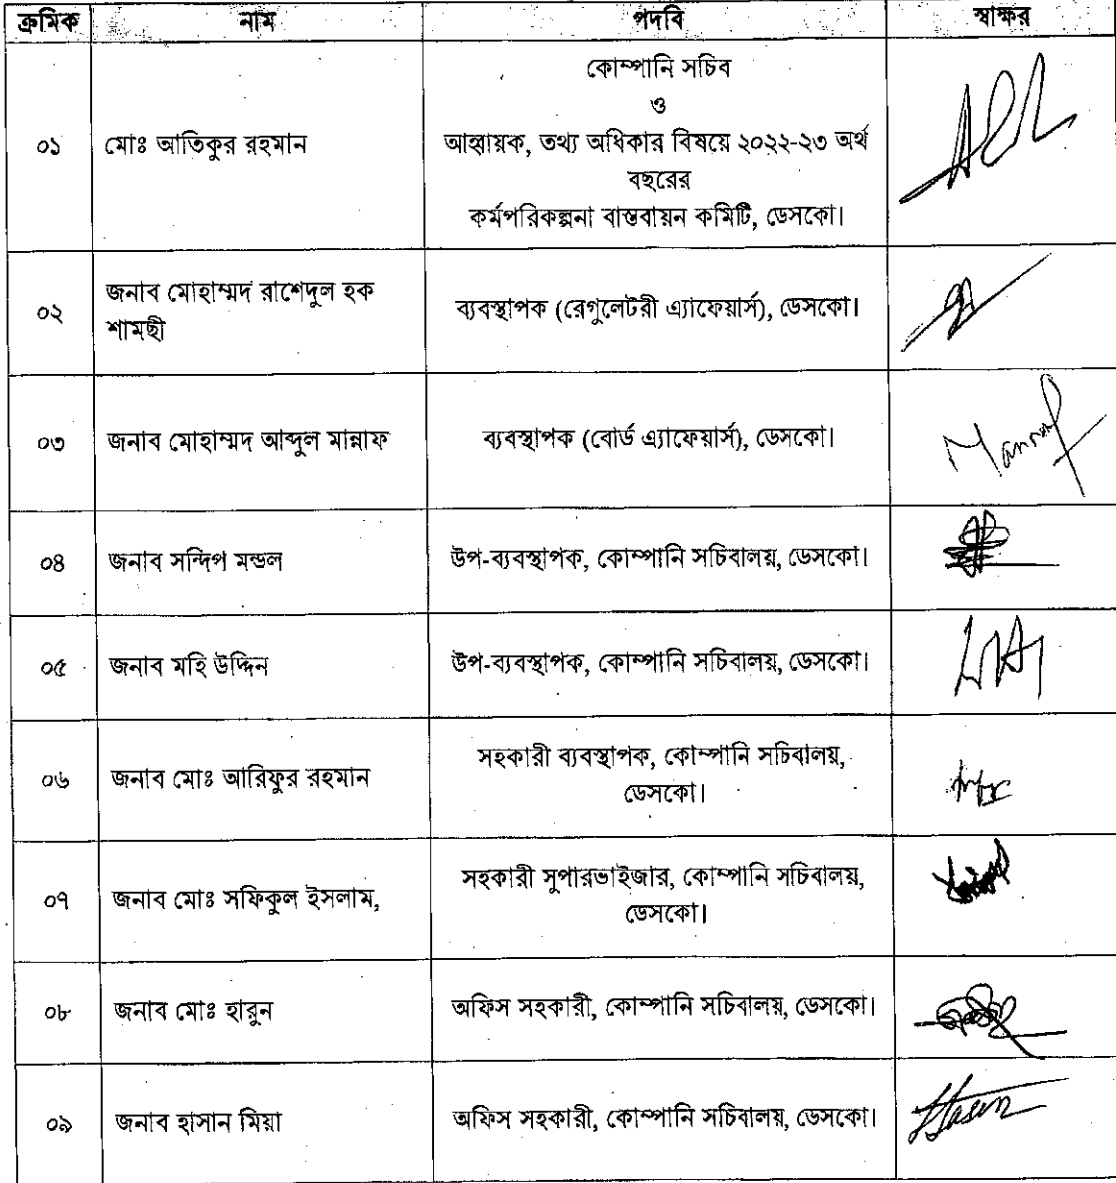 ক্রমিক নাম পদবি স্বাক্ষর
কোম্পানি সচিব
ও
০১ মোঃ আতিকুর রহমান আহ্বায়ক, তথ্য অধিকার বিষয়ে ২০২২-২৩ অর্থ
বছরের
কর্মপরিকল্পনা বাস্তবায়ন কমিটি, ডেসকো।
০২ জনাব মোহাম্মদ রাশেদুল হক
শামছী ব্যবস্থাপক (রেগুলেটরী এ্যাফেয়ার্স), ডেসকো।
০৩ জনাব মোহাম্মদ আব্দুল মান্নাফ ব্যবস্থাপক (বোর্ড এ্যাফেয়ার্স), ডেসকো। Mannaf
০৪ জনাব সন্দিপ মন্ডল উপ-ব্যবস্থাপক, কোম্পানি সচিবালয়, ডেসকো।
০৫ জনাব মহি উদ্দিন উপ-ব্যবস্থাপক, কোম্পানি সচিবালয়, ডেসকো।
০৬ জনাব মোঃ আরিফুর রহমান সহকারী ব্যবস্থাপক, কোম্পানি সচিবালয়,
ডেসকো।
০৭ জনাব মোঃ সফিকুল ইসলাম, সহকারী সুপারভাইজার, কোম্পানি সচিবালয়,
ডেসকো।
০৮ জনাব মোঃ হারুন অফিস সহকারী, কোম্পানি সচিবালয়, ডেসকো।
০৯ জনাব হাসান মিয়া অফিস সহকারী, কোম্পানি সচিবালয়, ডেসকো। Hasan